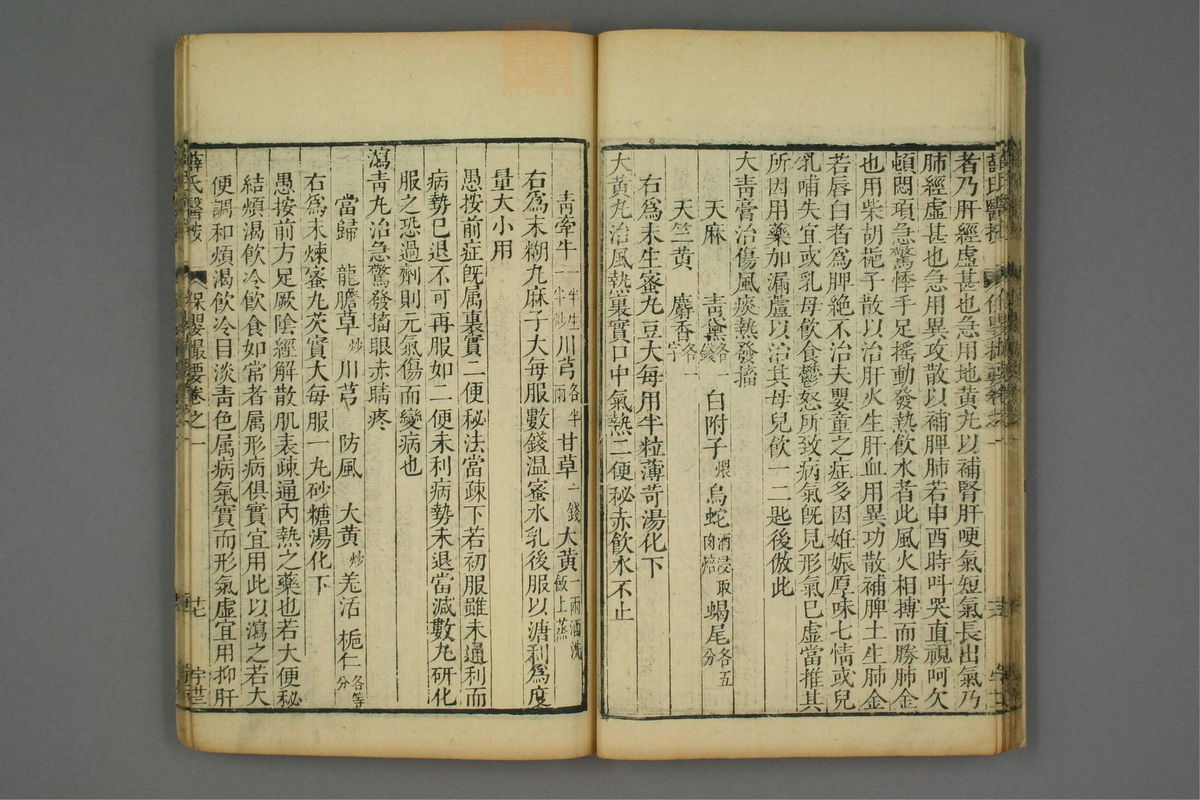 者乃肝經虛甚也急用地黃丸以補腎肝哽氣短氣長出氣乃
肺經虛甚也急用異攻散以補脾肺若申酉時呌哭直視呵欠
頓悶項急驚悸手足搖動發熱飲水者此風火相搏而勝肺金
也用柴胡梔子散以治肝火生肝血用異功散補脾土生肺金
若唇白者爲脾絶不治夫嬰童之症多因姙娠厚味七情或兒
乳哺失宜或乳母飲食鬱怒所致病氣旣見形氣巳虛當推其
所因用藥加漏蘆以治其母兒飲一二匙後倣此
大靑膏治傷風痰熱發搐
天麻 靑黛各一錢 白附子煨 烏蛇酒浸取肉焙 蝎尾各五分
天竺黃 麝香各一字
右爲末生蜜丸豆大每用半粒薄苛湯化下
大黃丸治風熱裏實口中氣熱二便秘赤飲水不止
靑牽牛一半生一半炒 川芎各半兩 甘草二錢 大黃一兩酒洗飯上蒸
右爲末糊丸麻子大每服數錢温蜜水乳後服以溏利爲度
量大小用
愚按前症旣属裏實二便秘法當疎下若初服雖未通利而
病勢巳退不可再服如二便未利病勢未退當減數丸研化
服之恐過劑則元氣傷而變病也
瀉靑丸治急驚發搐眼赤睛疼
當歸 龍膽草炒 川芎 防風 大黃炒 羌活 梔仁各等分
右爲末煉蜜丸芡實大每服一丸砂糖湯化下
愚按前方足厥陰經解散肌表疎通內熱之藥也若大便秘
結煩渴飲冷飲食如常者属形病俱實宜用此以瀉之若大
便調和煩渴飲冷目淡靑色属病氣實而形氣虛宜用抑肝
薛氏醫按 保嬰撮要卷之一